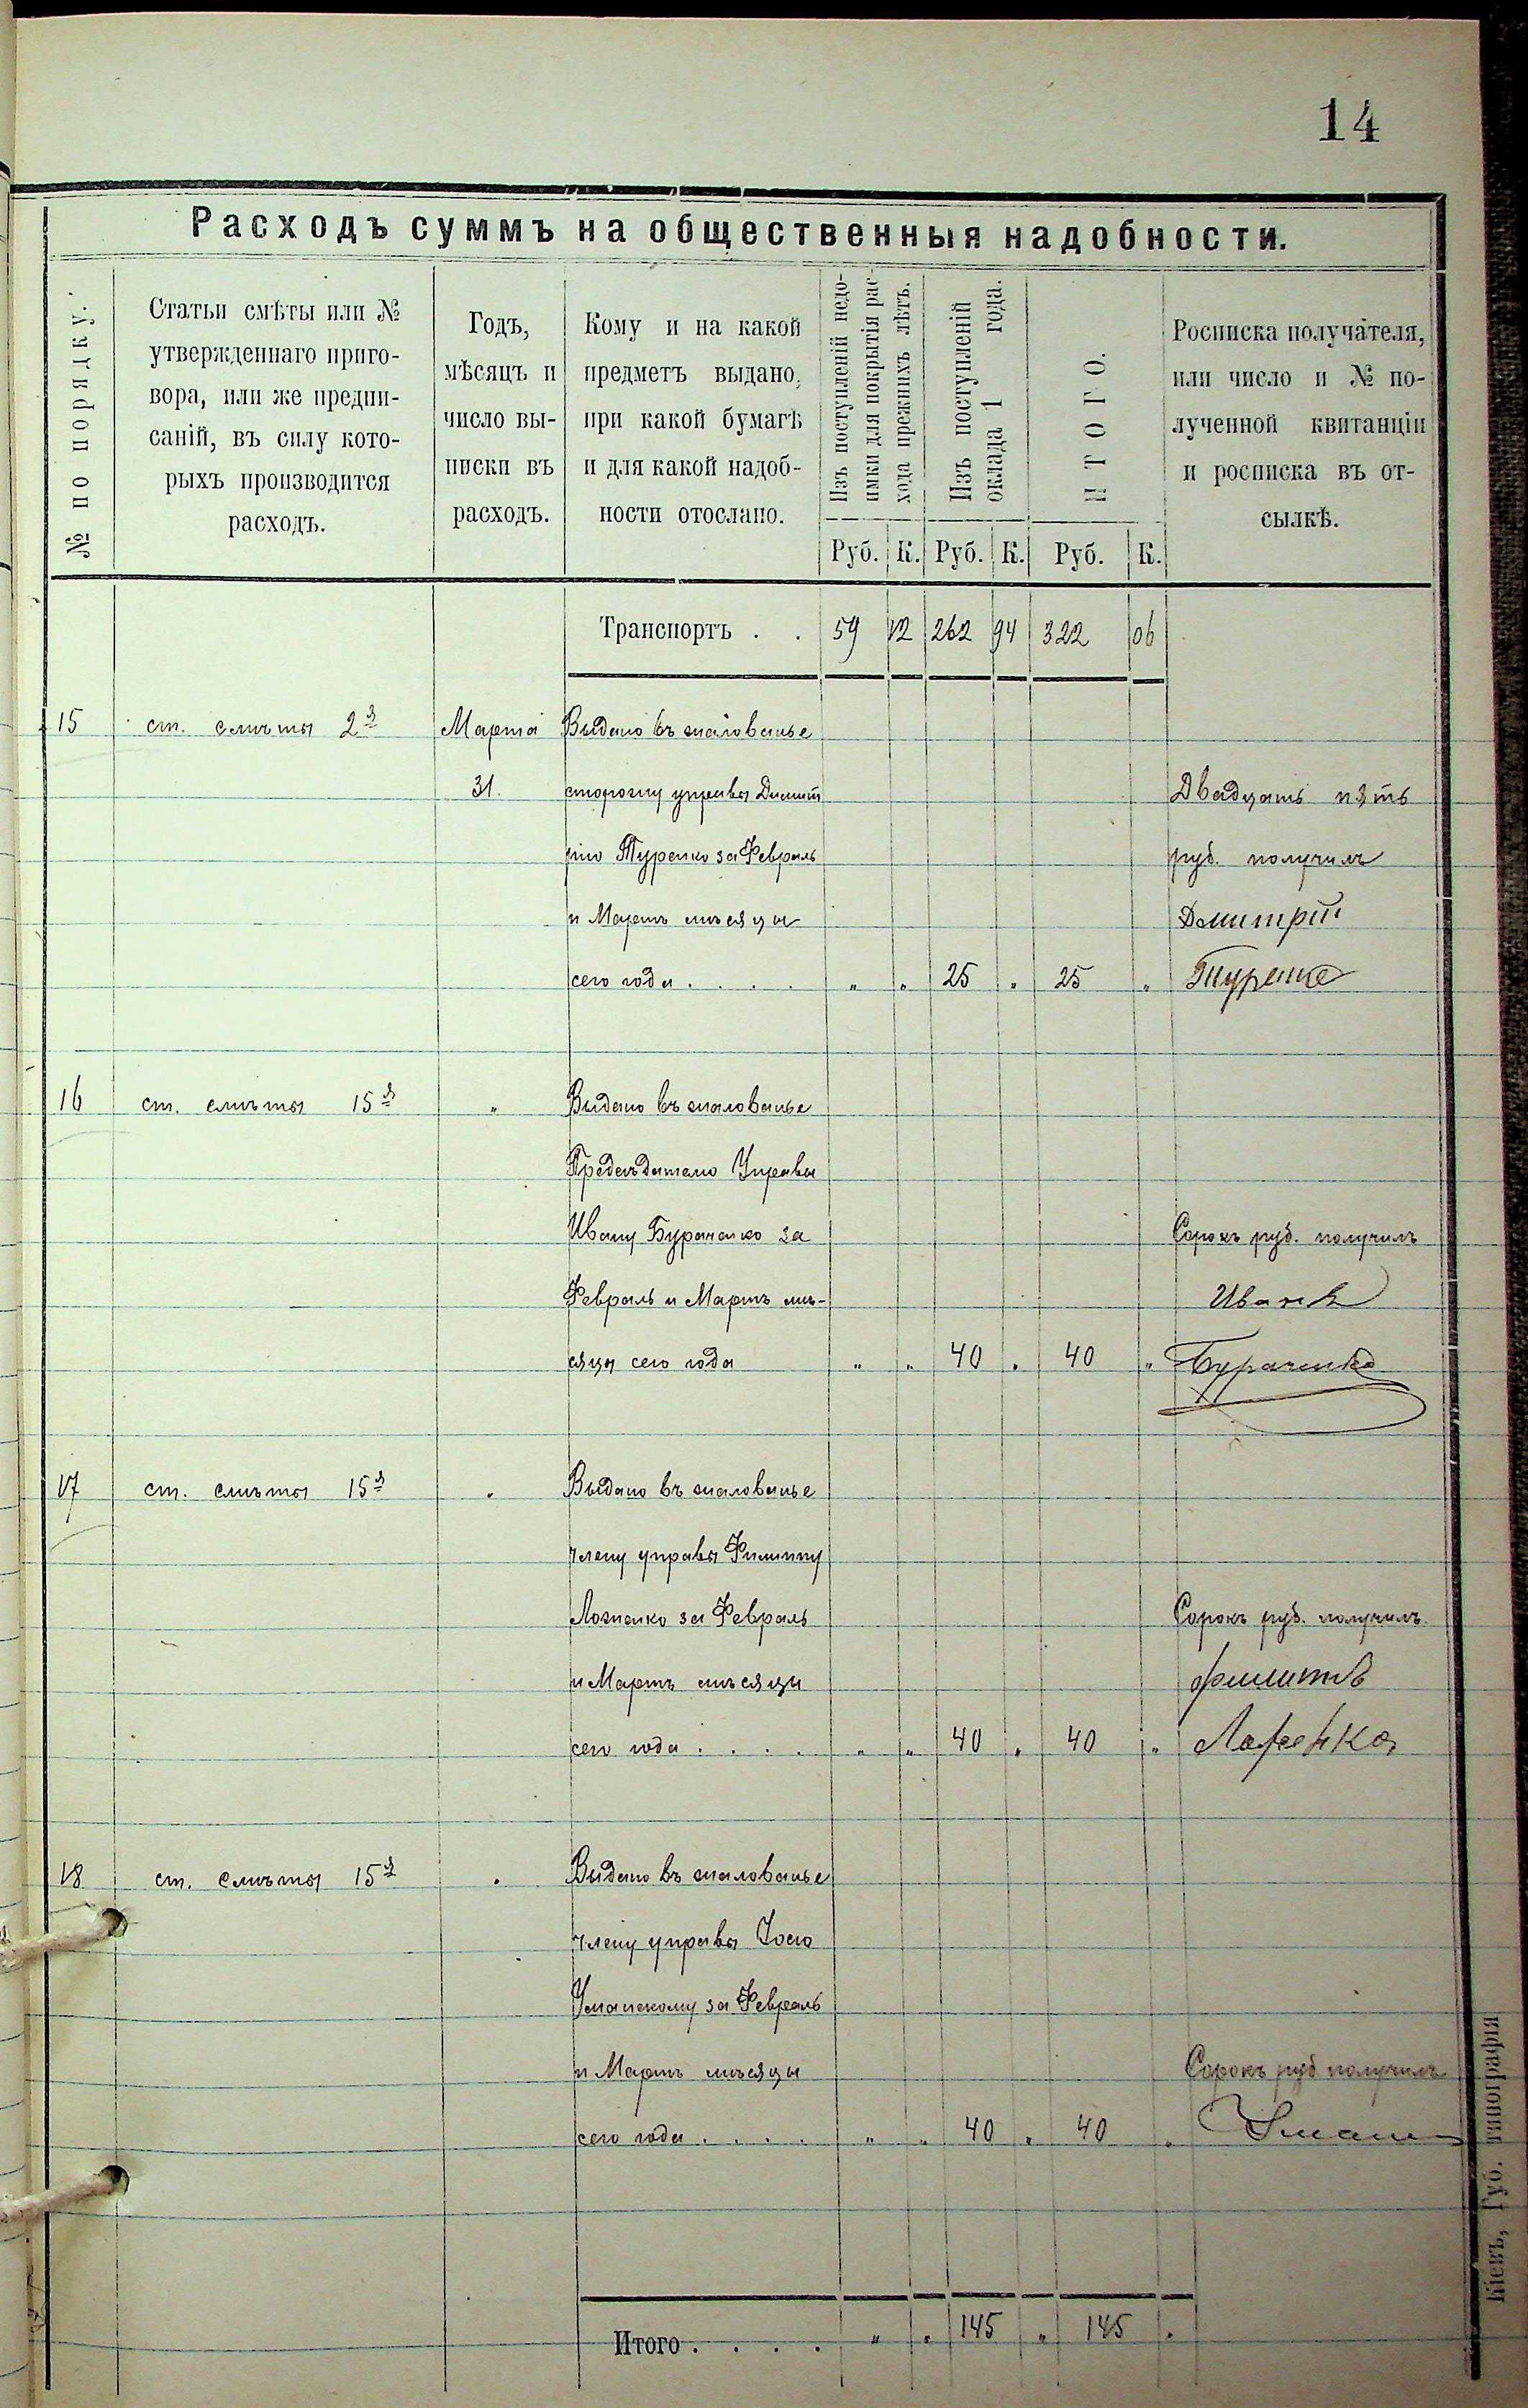 14
Расходъ суммъ на общественныя надобности.
№ по порядку.
Статьи смѣты или №
утвержденнаго приго-
вора, или же предпи-
саній, въ силу кото-
рыхъ производится
расходъ.
Годъ,
мѣсяцъ и
число вы-
писки въ
расходъ.
Кому и на какой
предметъ выдано,
при какой бумагѣ
и для какой надоб-
ности отослано.
Изъ поступленій недо-
имки для покрытія рас-
хода прежнихъ лѣтъ.
Изъ поступленій
оклада 1 года.
ИТОГО.
Росписка получателя,
или число и № по-
лученной квитанціи
и росписка въ от-
сылкѣ.
Руб. К. Руб. К. Руб. К.
Транспортъ . . 59 12 262 94 322 06
15 ст. смѣты 2я Марта Выдано въ жалованье
31. сторожу управы Димит Двадцать пять
рію Туренко за Февраль руб. получилъ
и Мартъ мѣсяцы Дмитрій
сего года . . . . " " 25 " 25 " Туренко
16 ст. смѣты 15я " Выдано въ жалованье
Предсѣдателю Управы
Ивану Бураченко за Сорокъ руб. получилъ
Февраль и Мартъ мѣ- Иванъ
сяцы сего года " " 40 " 40 " Бураченко
17 ст. смѣты 15я " Выдано въ жалованье
члену управы Филиппу
Ложенко за Февраль Сорокъ руб. получилъ
и Мартъ мѣсяцы Филиппъ
сего года . . . . " " 40 " 40 " Ложенко
18 ст. смѣты 15я " Выдано въ жалованье
члену управы
Уманскому за Февраль
и Мартъ мѣсяцы Сорокъ руб получилъ
сего года . . . . " " 40 " 40 "
Итого . . . . " " 145 " 145 "
Кіевъ, Губ. типографія